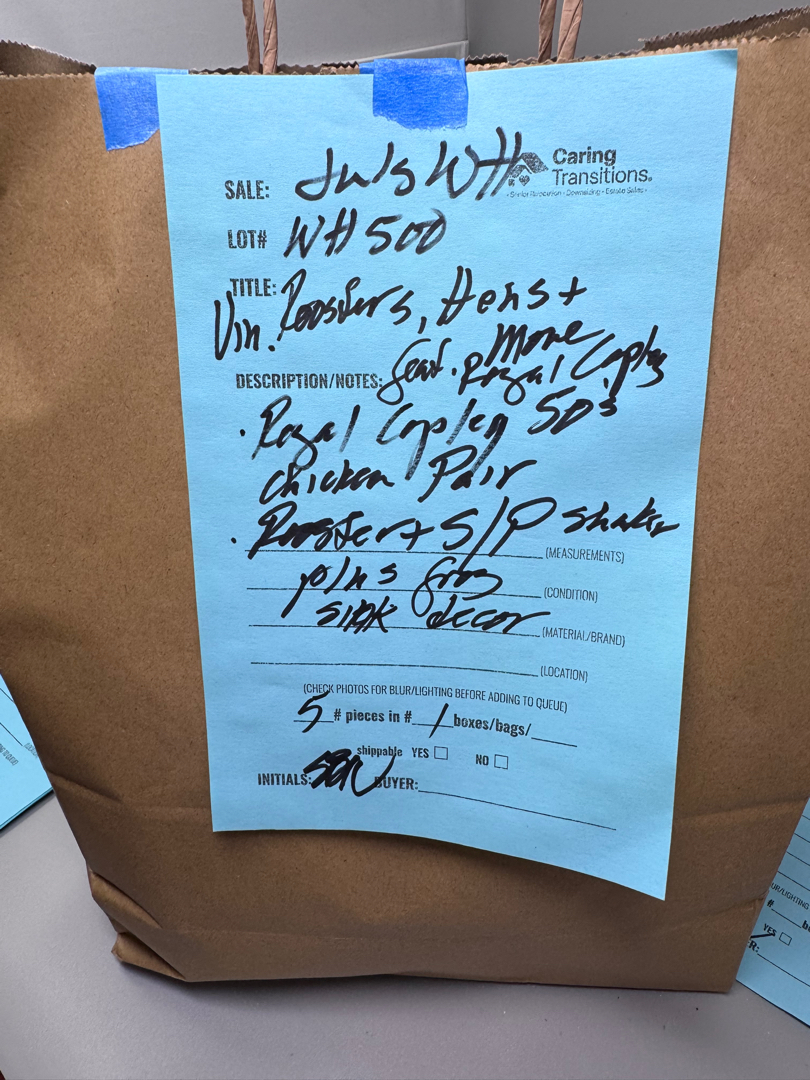 Caring
Transitions®
• Senior Relocation • Downsizing • Estate Sales •
SALE: July WH
LOT# WH 500
TITLE: Roosters, Hens +
Vin.
More
DESCRIPTION/NOTES: feat. Royal Copley
• Royal Copley 50s
chicken Pair
• Rooster + S/P shaker
(MEASUREMENTS)
plus frog
(CONDITION)
sink decor
(MATERIAL/BRAND)
(LOCATION)
(CHECK PHOTOS FOR BLUR/LIGHTING BEFORE ADDING TO QUEUE)
5 # pieces in # 1 boxes/bags/
shippable YES NO
INITIALS: BUYER:
UR/LIGHTING
#
YES